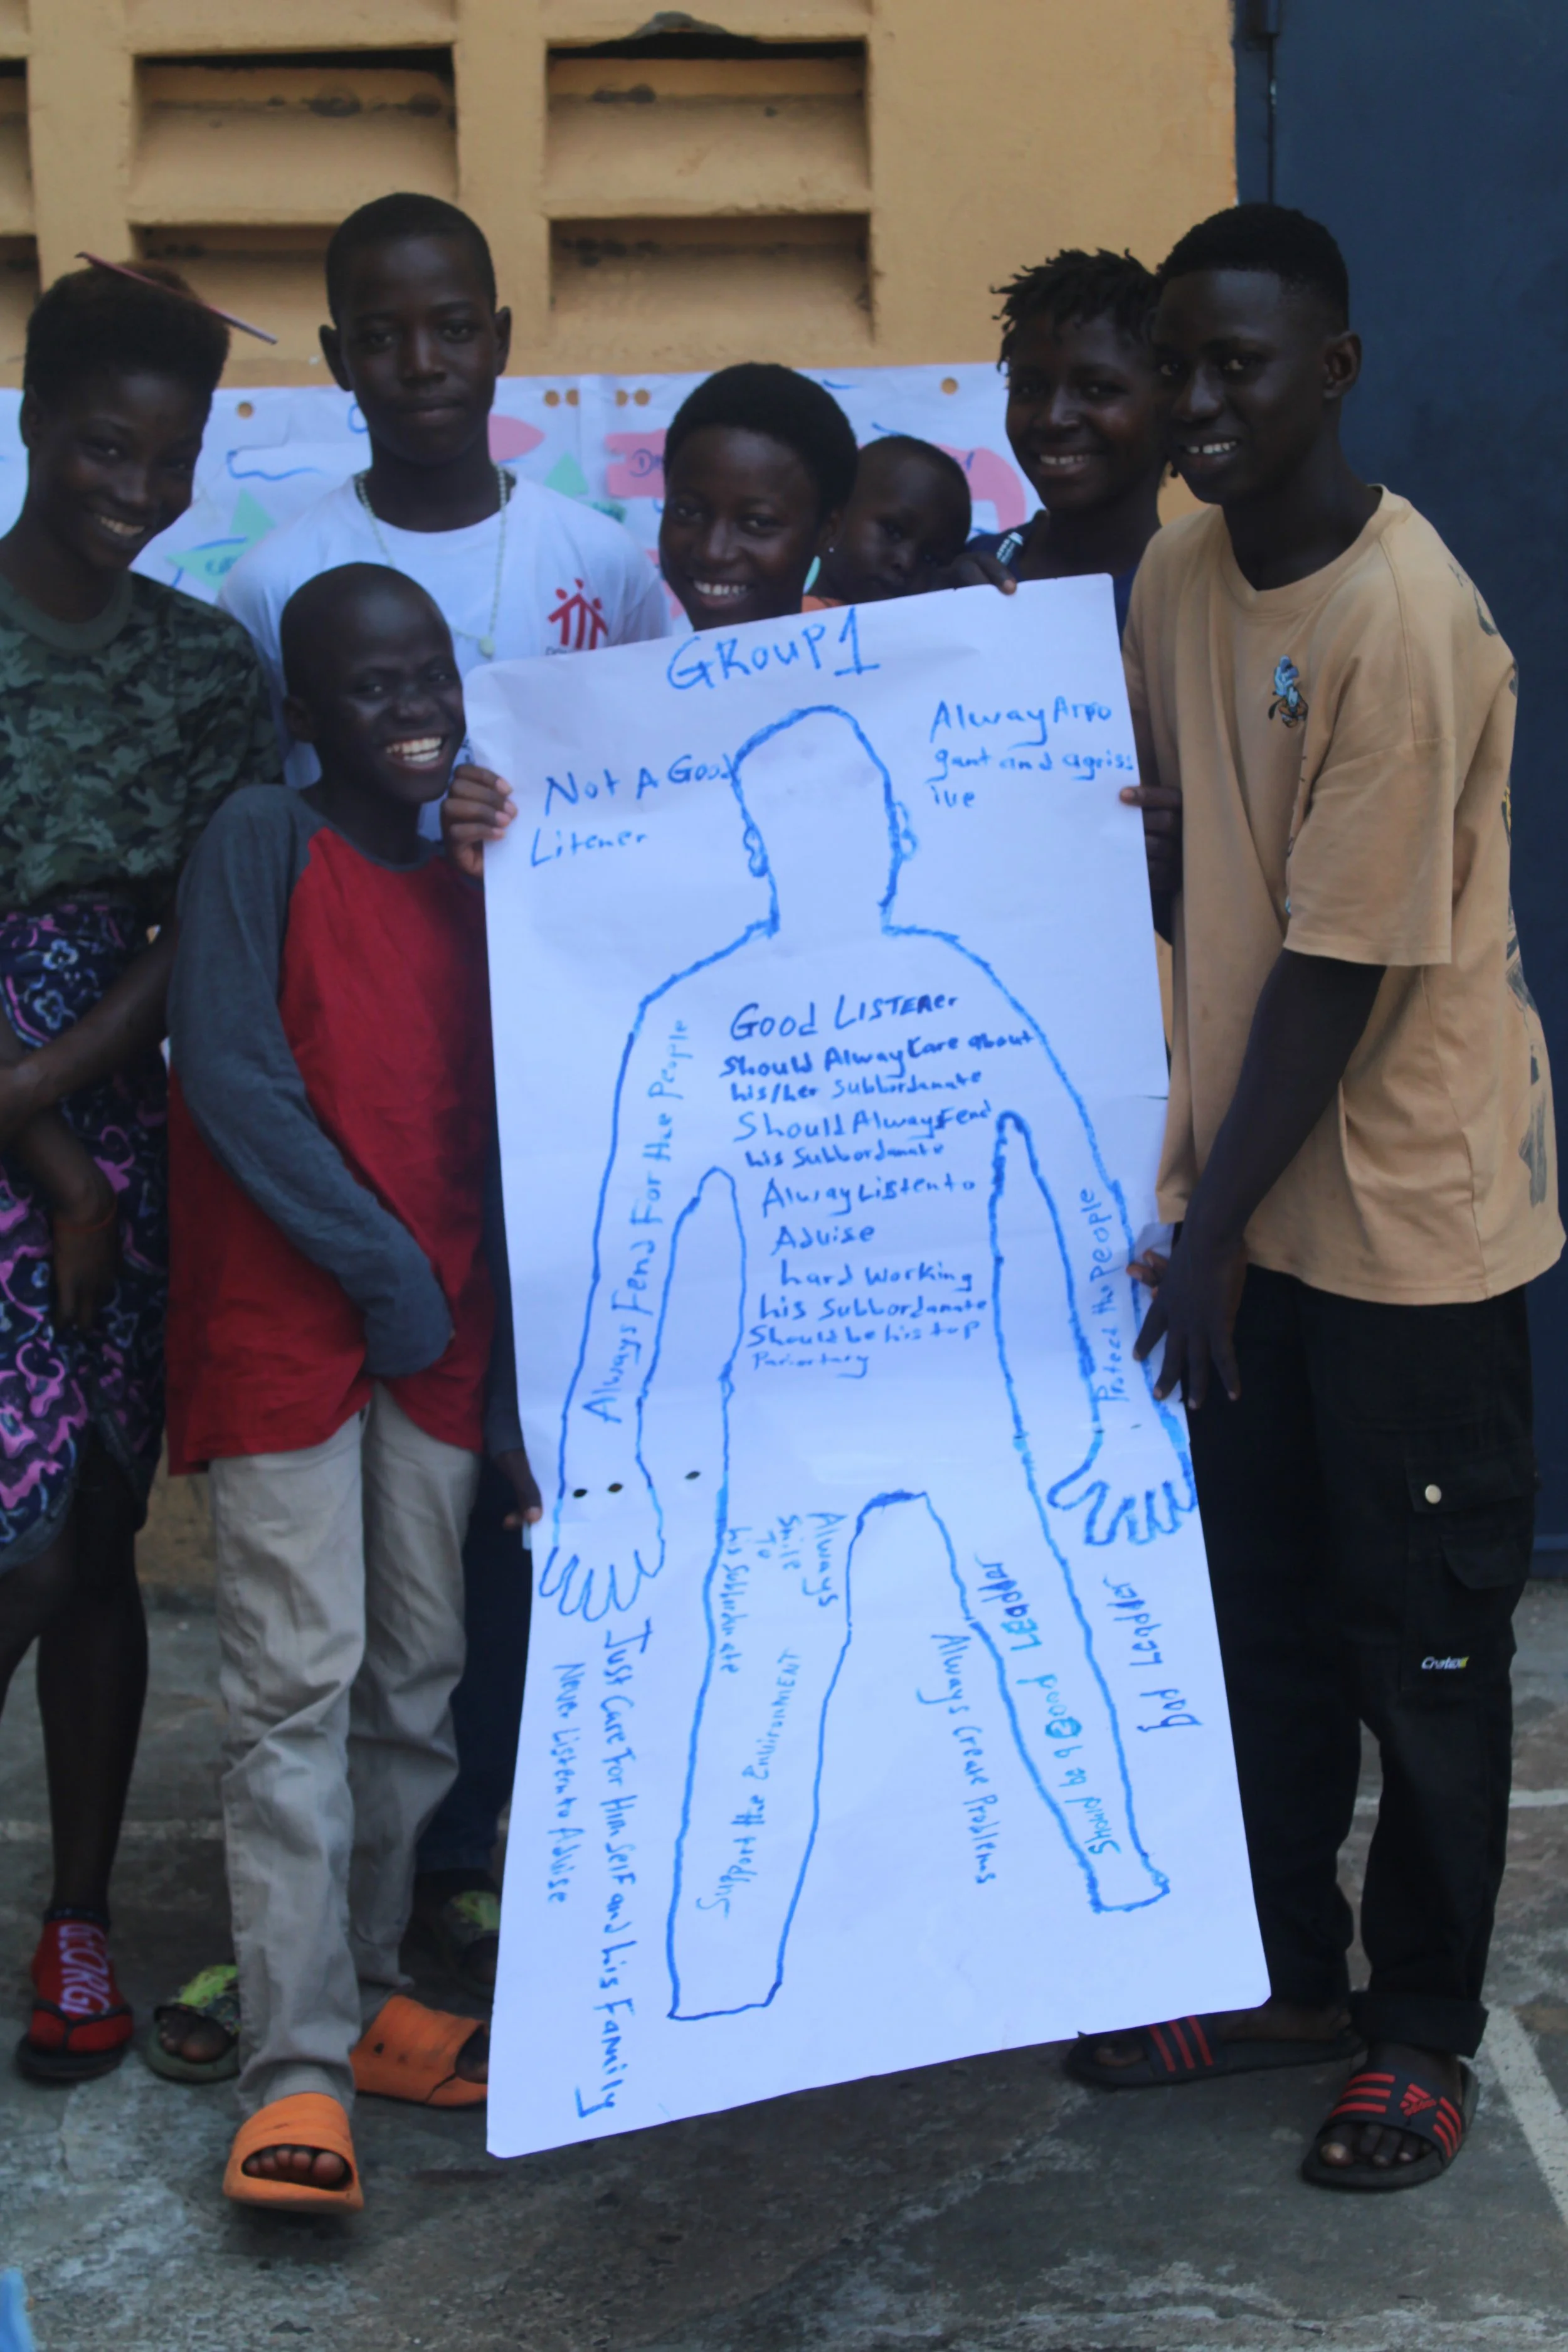 GROUP 1
Not A Good
Litener
Alway Arro
gant and agriss
ive
Good LISTENER
Should Alway Care about
his/her Subbordanate
Should Always Fend
his Subbordanate
Alway Listen to
Advise
hard working
his Subbordanate
Should be his top
Always Fend For the People
Protect the People
Always
Smile
To
his Subbordnate
Support the Environment
Should be a Good Leadder
Bad Leadder
Always Create Problems
Just Care For Him Self and his Family
Never Listen to Advise
GEORGI